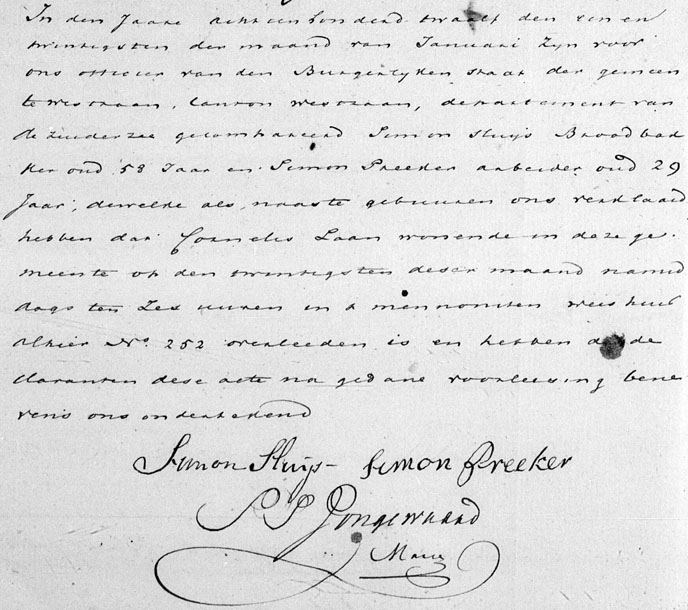 In den Jaare achtienhonderd twaalf den een en
twintigsten der maand van Januari zyn voor
ons officier van den Burgerlyken staat der gemeen
te westzaan, Canton westzaan, departement van
de zuiderzee gecompareerd Simon Sluijs Broodbak
ker oud 58 Jaar en Simon Preeker arbeider oud 29
Jaar, dewelke als naaste gebuuren ons verklaard
hebben dat Cornelis Laan wonende in deze ge
meente op den twintigsten deser maand namid
dags ten Zes uuren in t mennoniten weishuis
alhier No. 252 overleeden is en hebben de de
claranten dese acte na gedane voorleesing bene
vens ons ondertekend
Simon Sluijs - Simon Preeker
Jongewaard
Maire